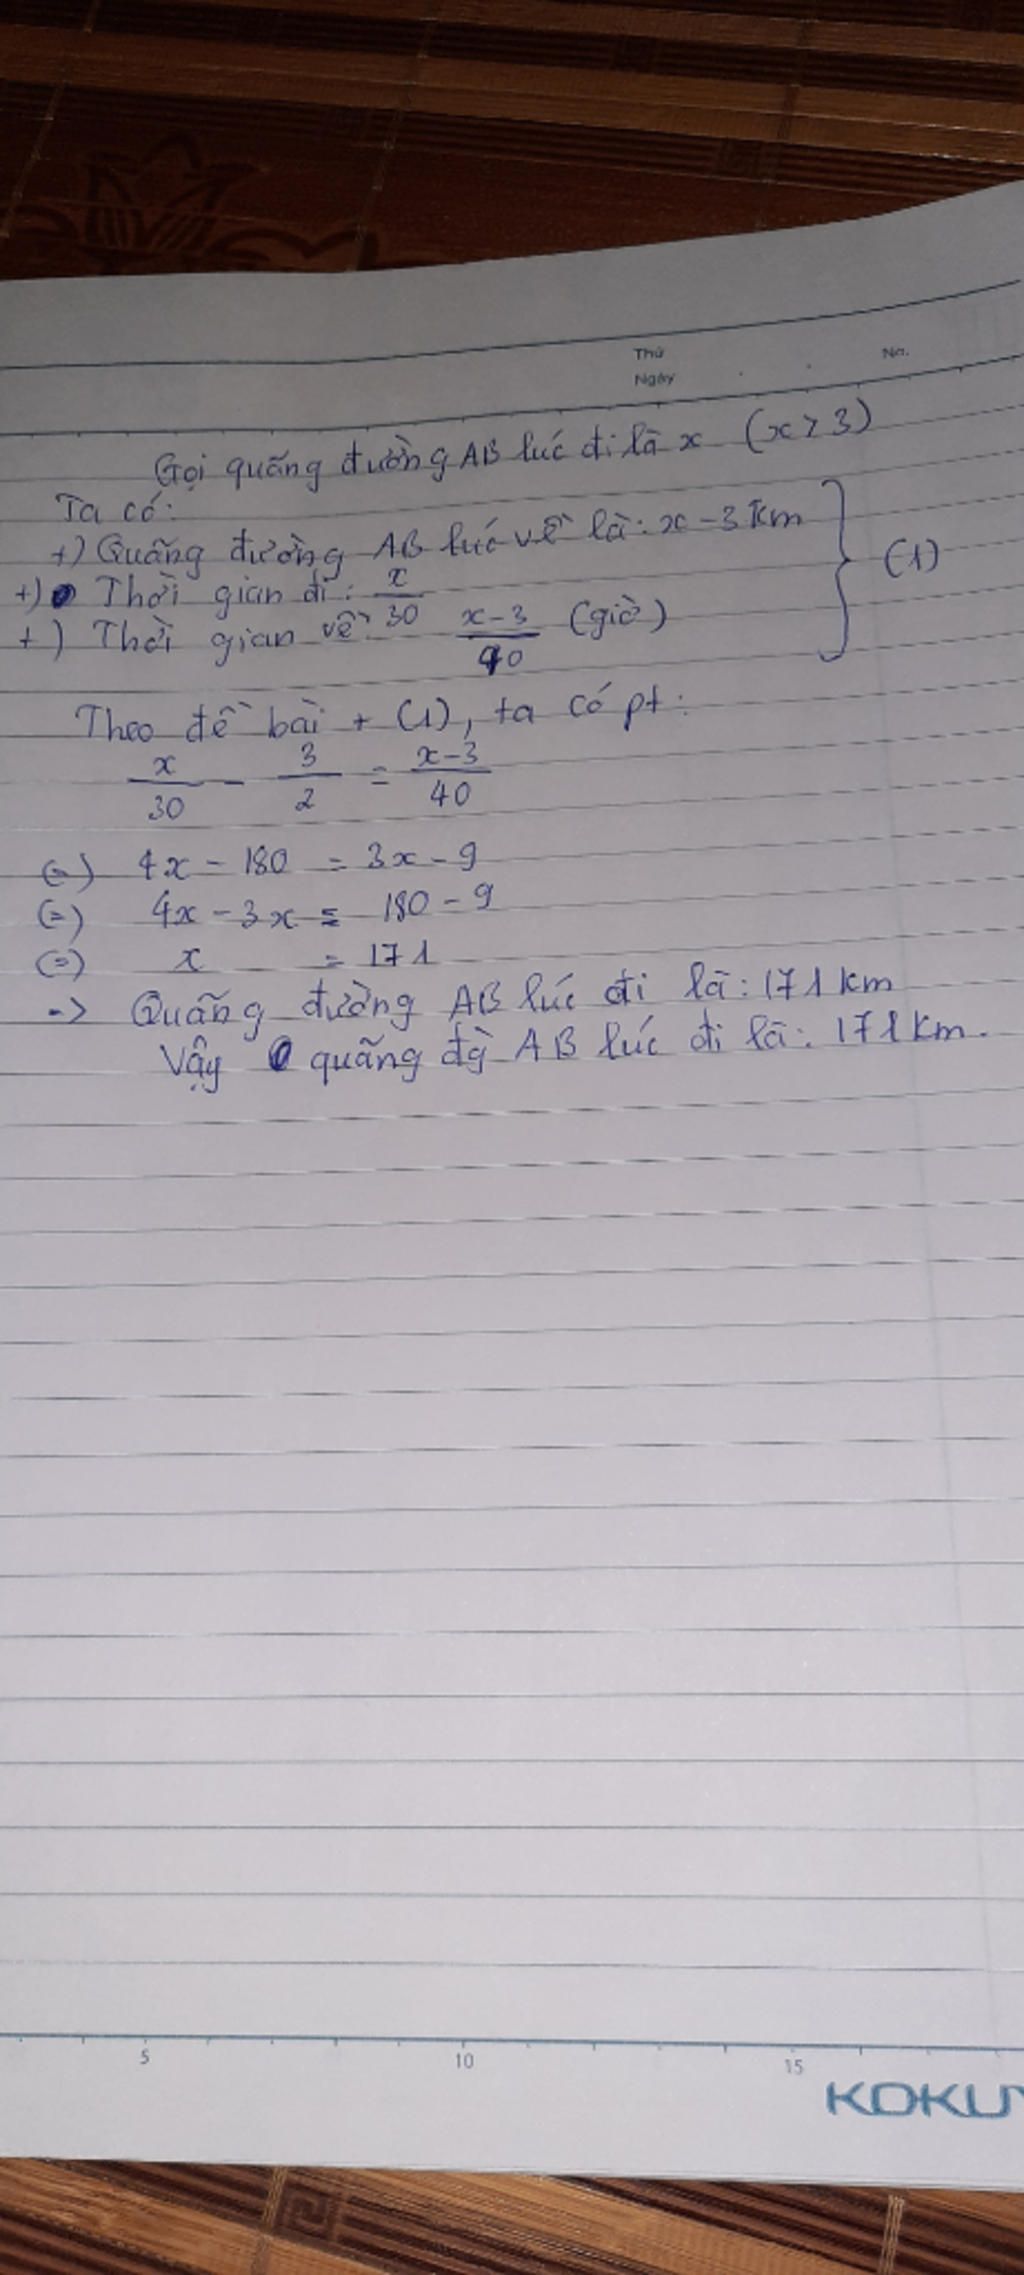 Thứ
Ngày
No.
Gọi quãng đường AB lúc đi là x (x > 3)
Ta có:
+) Quãng đường AB lúc về là: x - 3 km
+) Thời gian đi: x/30
+) Thời gian về: x-3/40 (giờ)
} (1)
Theo đề bài + (1), ta có pt:
x/30 - 3/2 = x-3/40
(=) 4x - 180 = 3x - 9
(=) 4x - 3x = 180 - 9
(=) x = 171
-> Quãng đường AB lúc đi là: 171 km
Vậy quãng đg AB lúc đi là: 171 km.
5 10 15
KOKUY